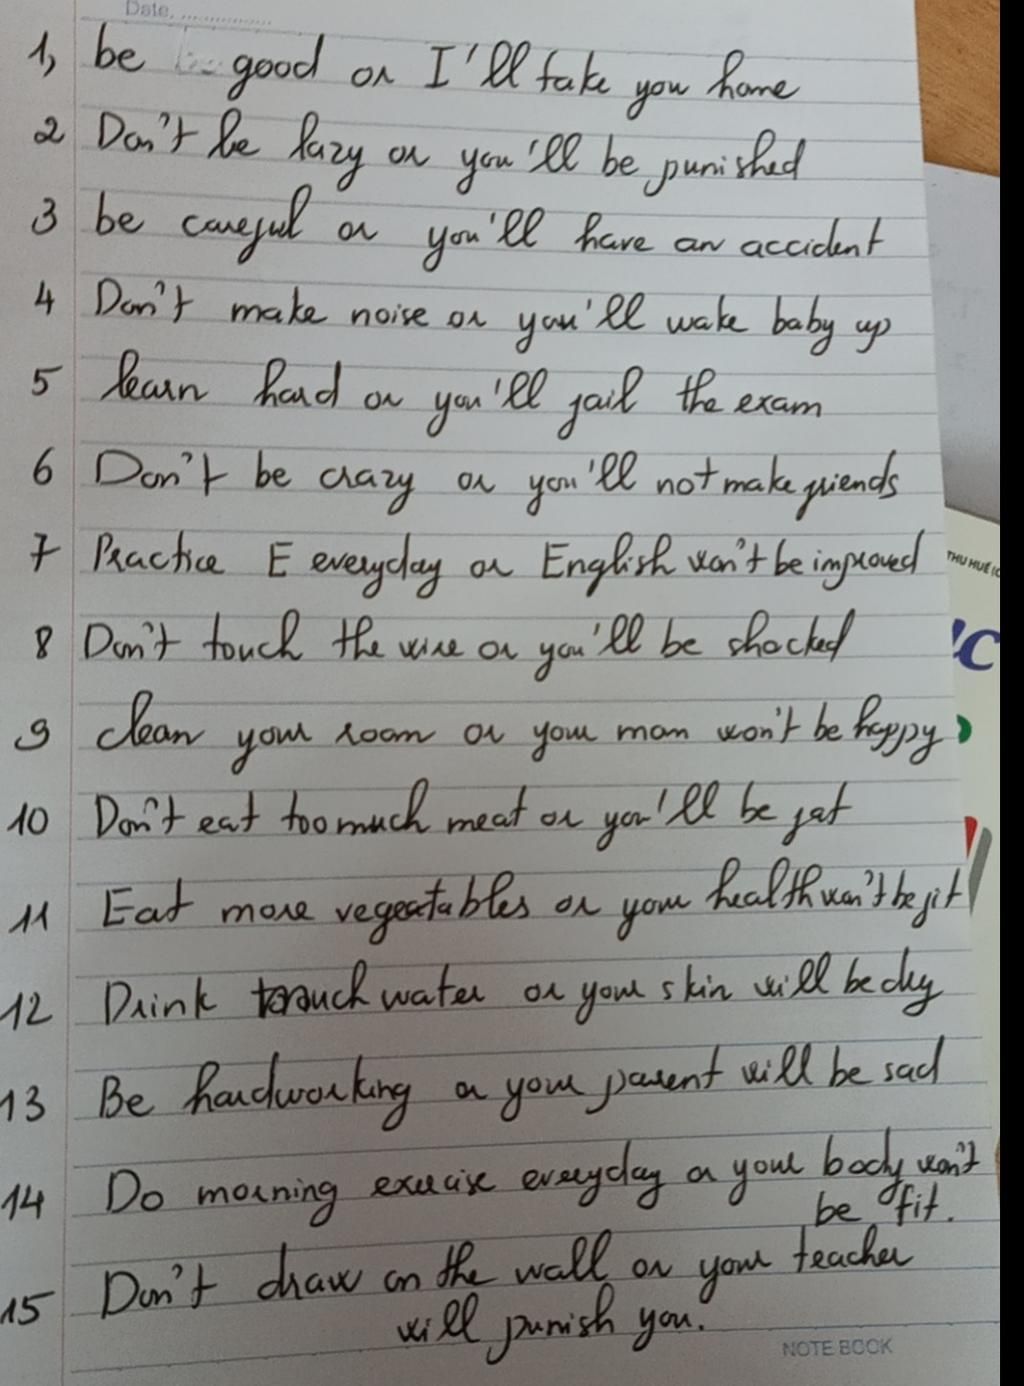 Date, ...............
1, be good or I'll take you home
2 Don't be lazy or you'll be punished
3 be careful or you'll have an accident
4 Don't make noise or you'll wake baby up
5 learn hard or you'll fail the exam
6 Don't be crazy or you'll not make friends
7 Practice E everyday or English won't be improved
THU HUẾ (C
8 Don't touch the wire or you'll be shocked
9 clean your room or your mom won't be happy
10 Don't eat too much meat or you'll be fat
11 Eat more vegeatables or your health won't be fit
12 Drink much water or your skin will be dry
13 Be hardworking or your parent will be sad
14 Do morning exercise everyday or your body won't
be fit.
15 Don't draw on the wall or your teacher
will punish you.
NOTE BOOK